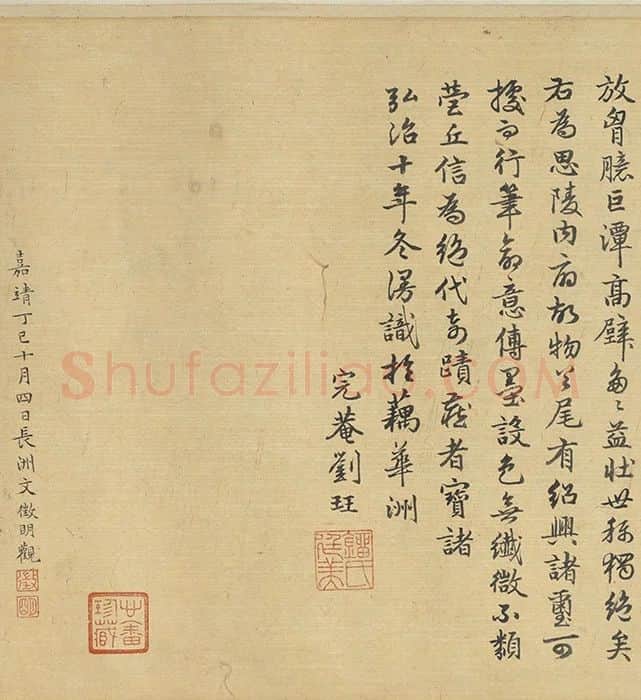 放胷臆巨潭髙壁益壮世称獨絶矣
右為思陵内府故物首尾有紹興諸璽可
據而行筆命意傳墨設色無纖微不類
營丘信為絶代奇蹟藏者寶諸
弘治十年冬漫識於藕華洲
完菴劉珏
劉氏廷美
嘉靖丁巳十月四日長洲文徵明觀
徵
明
珍藏
Shufaziliao.COM